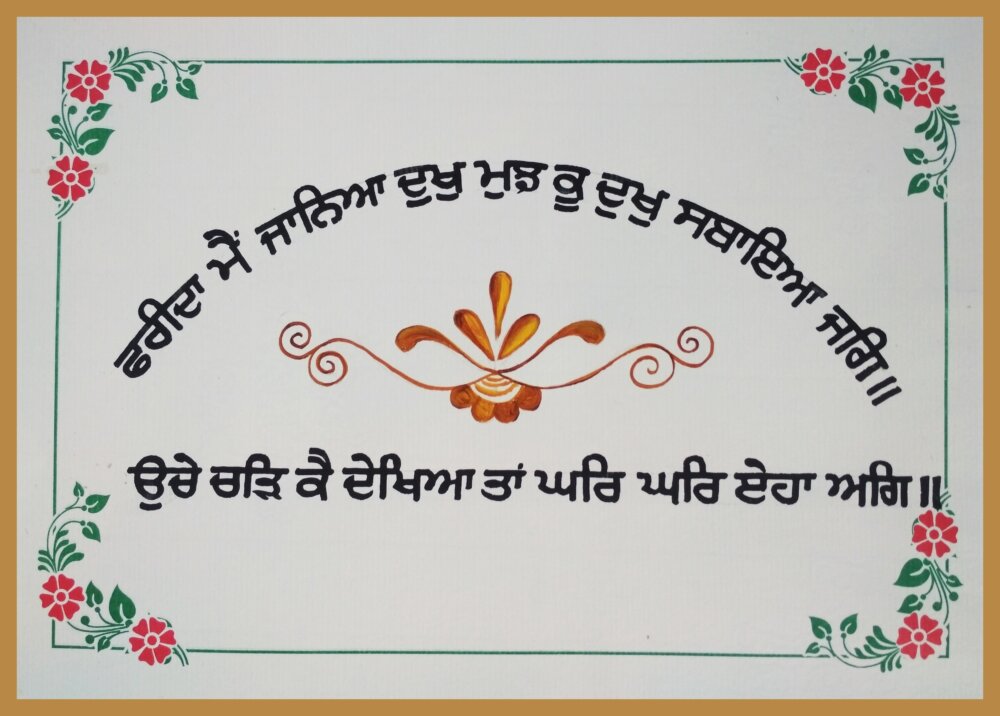 ਫਰੀਦਾ ਮੈਂ ਜਾਨਿਆ ਦੁਖੁ ਮੁਝ ਕੂ ਦੁਖੁ ਸਬਾਇਆ ਜਗਿ॥
ਉਚੇ ਚੜਿ ਕੈ ਦੇਖਿਆ ਤਾਂ ਘਰਿ ਘਰਿ ਏਹਾ ਅਗਿ॥